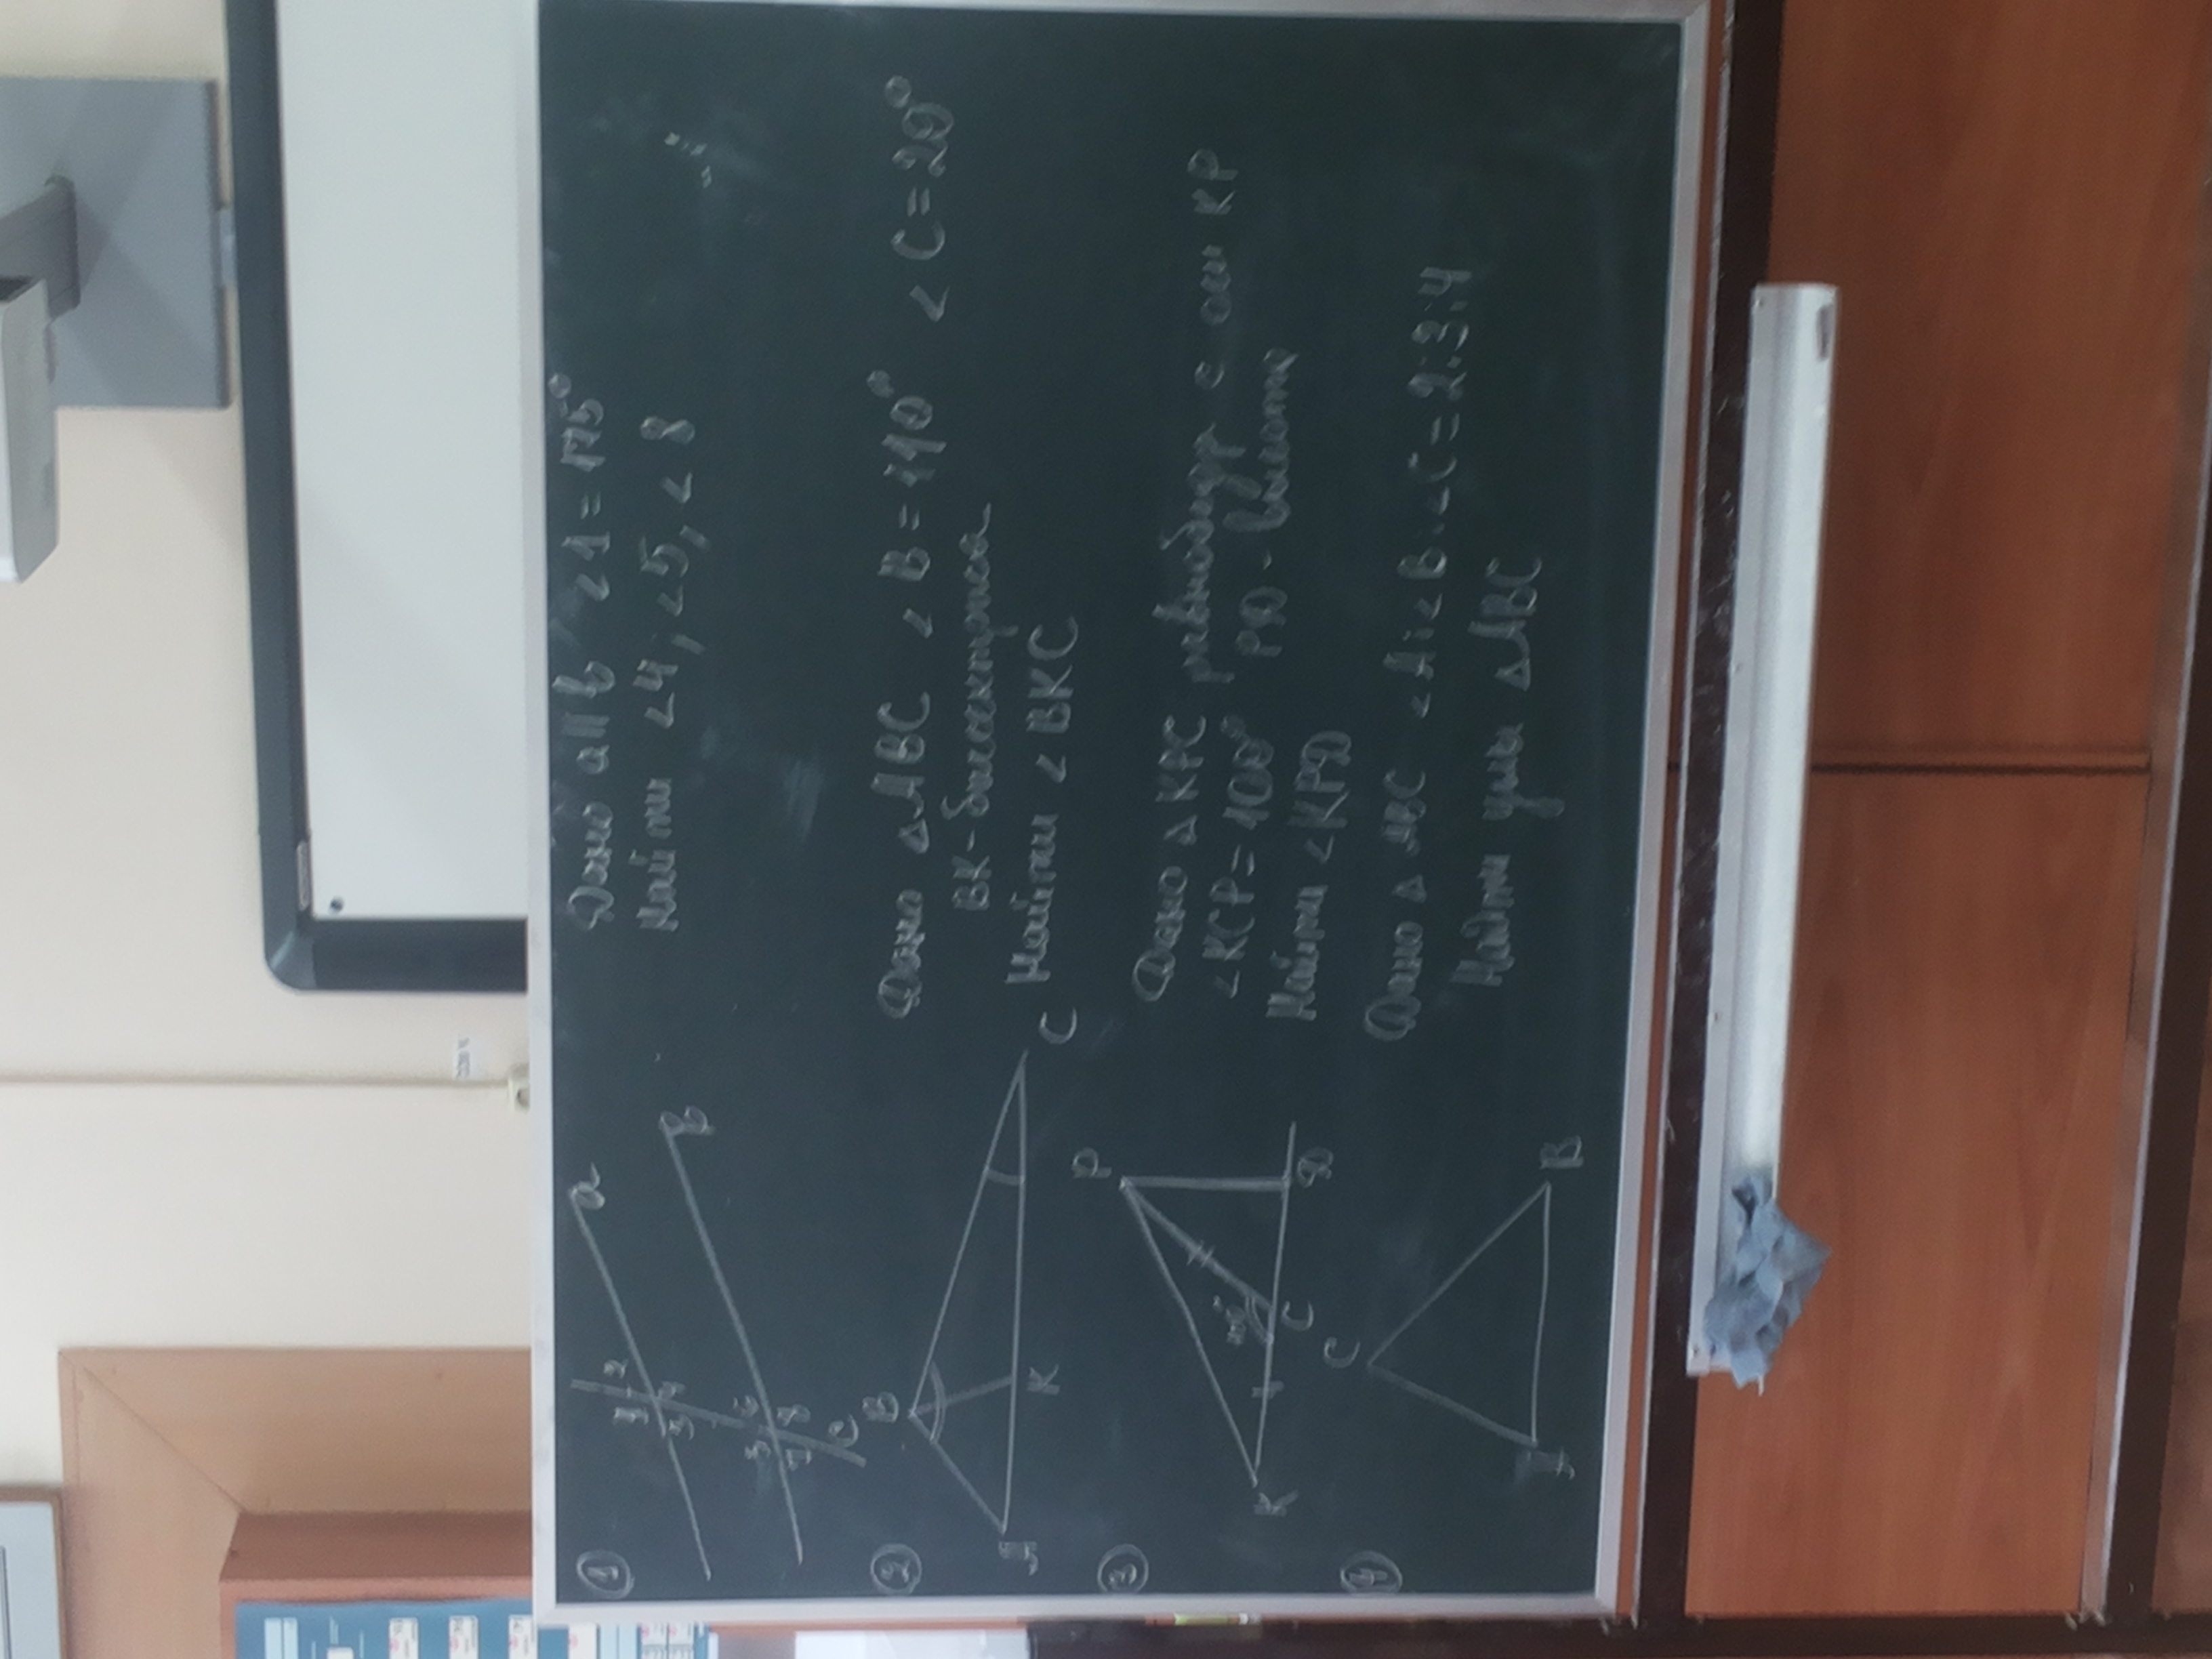 ①
a
b
c
1 2
3 4
5 6
7 8
Дано a || b ∠1 = 115°
Найти ∠4, ∠5, ∠8
②
B
A K C
Дано △ABC ∠B = 110° ∠C = 20°
BK - биссектриса
Найти ∠BKC
③
P
K C D
100°
Дано △KPC равнобедр с осн KP
∠KCP = 100° PD - высота
Найти ∠KPD
④
C
B
Дано △ABC ∠A:∠B:∠C = 2:3:4
Найти углы △ABC